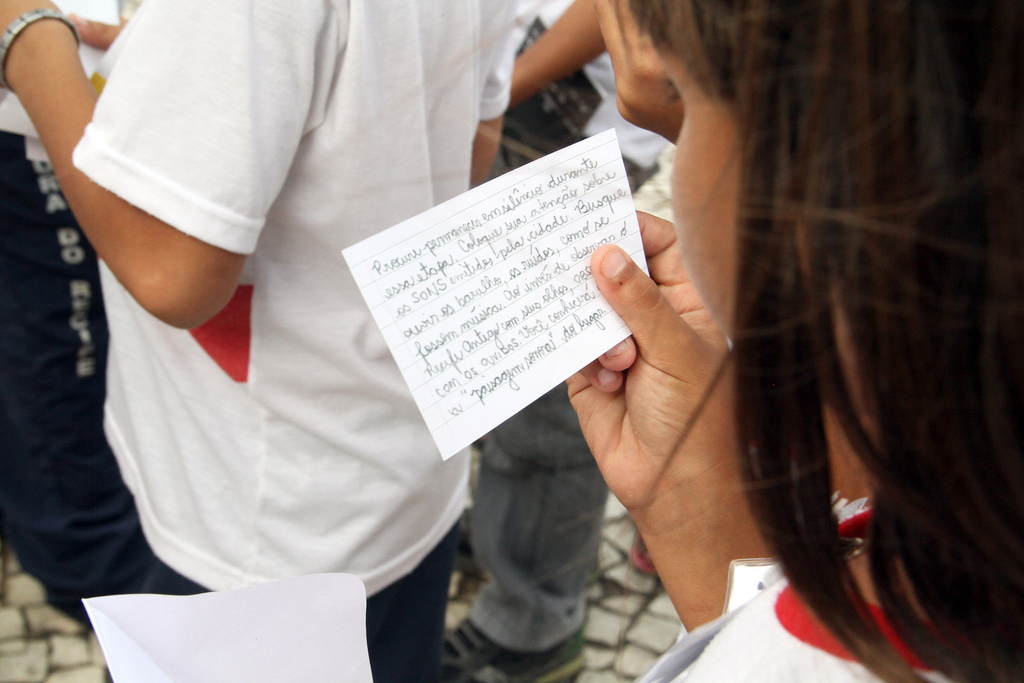 Procure permanecer em silêncio durante
essa etapa. Coloque sua atenção sobre
os SONS emitidos pela cidade. Busque
ouvir os barulhos, os ruídos, como se
fossem música. Ao invés de observar o
Recife Antigo com seus olhos,
com os ouvidos. Você conhecerá
a "paisagem sonora" do lugar.
DO RECIFE